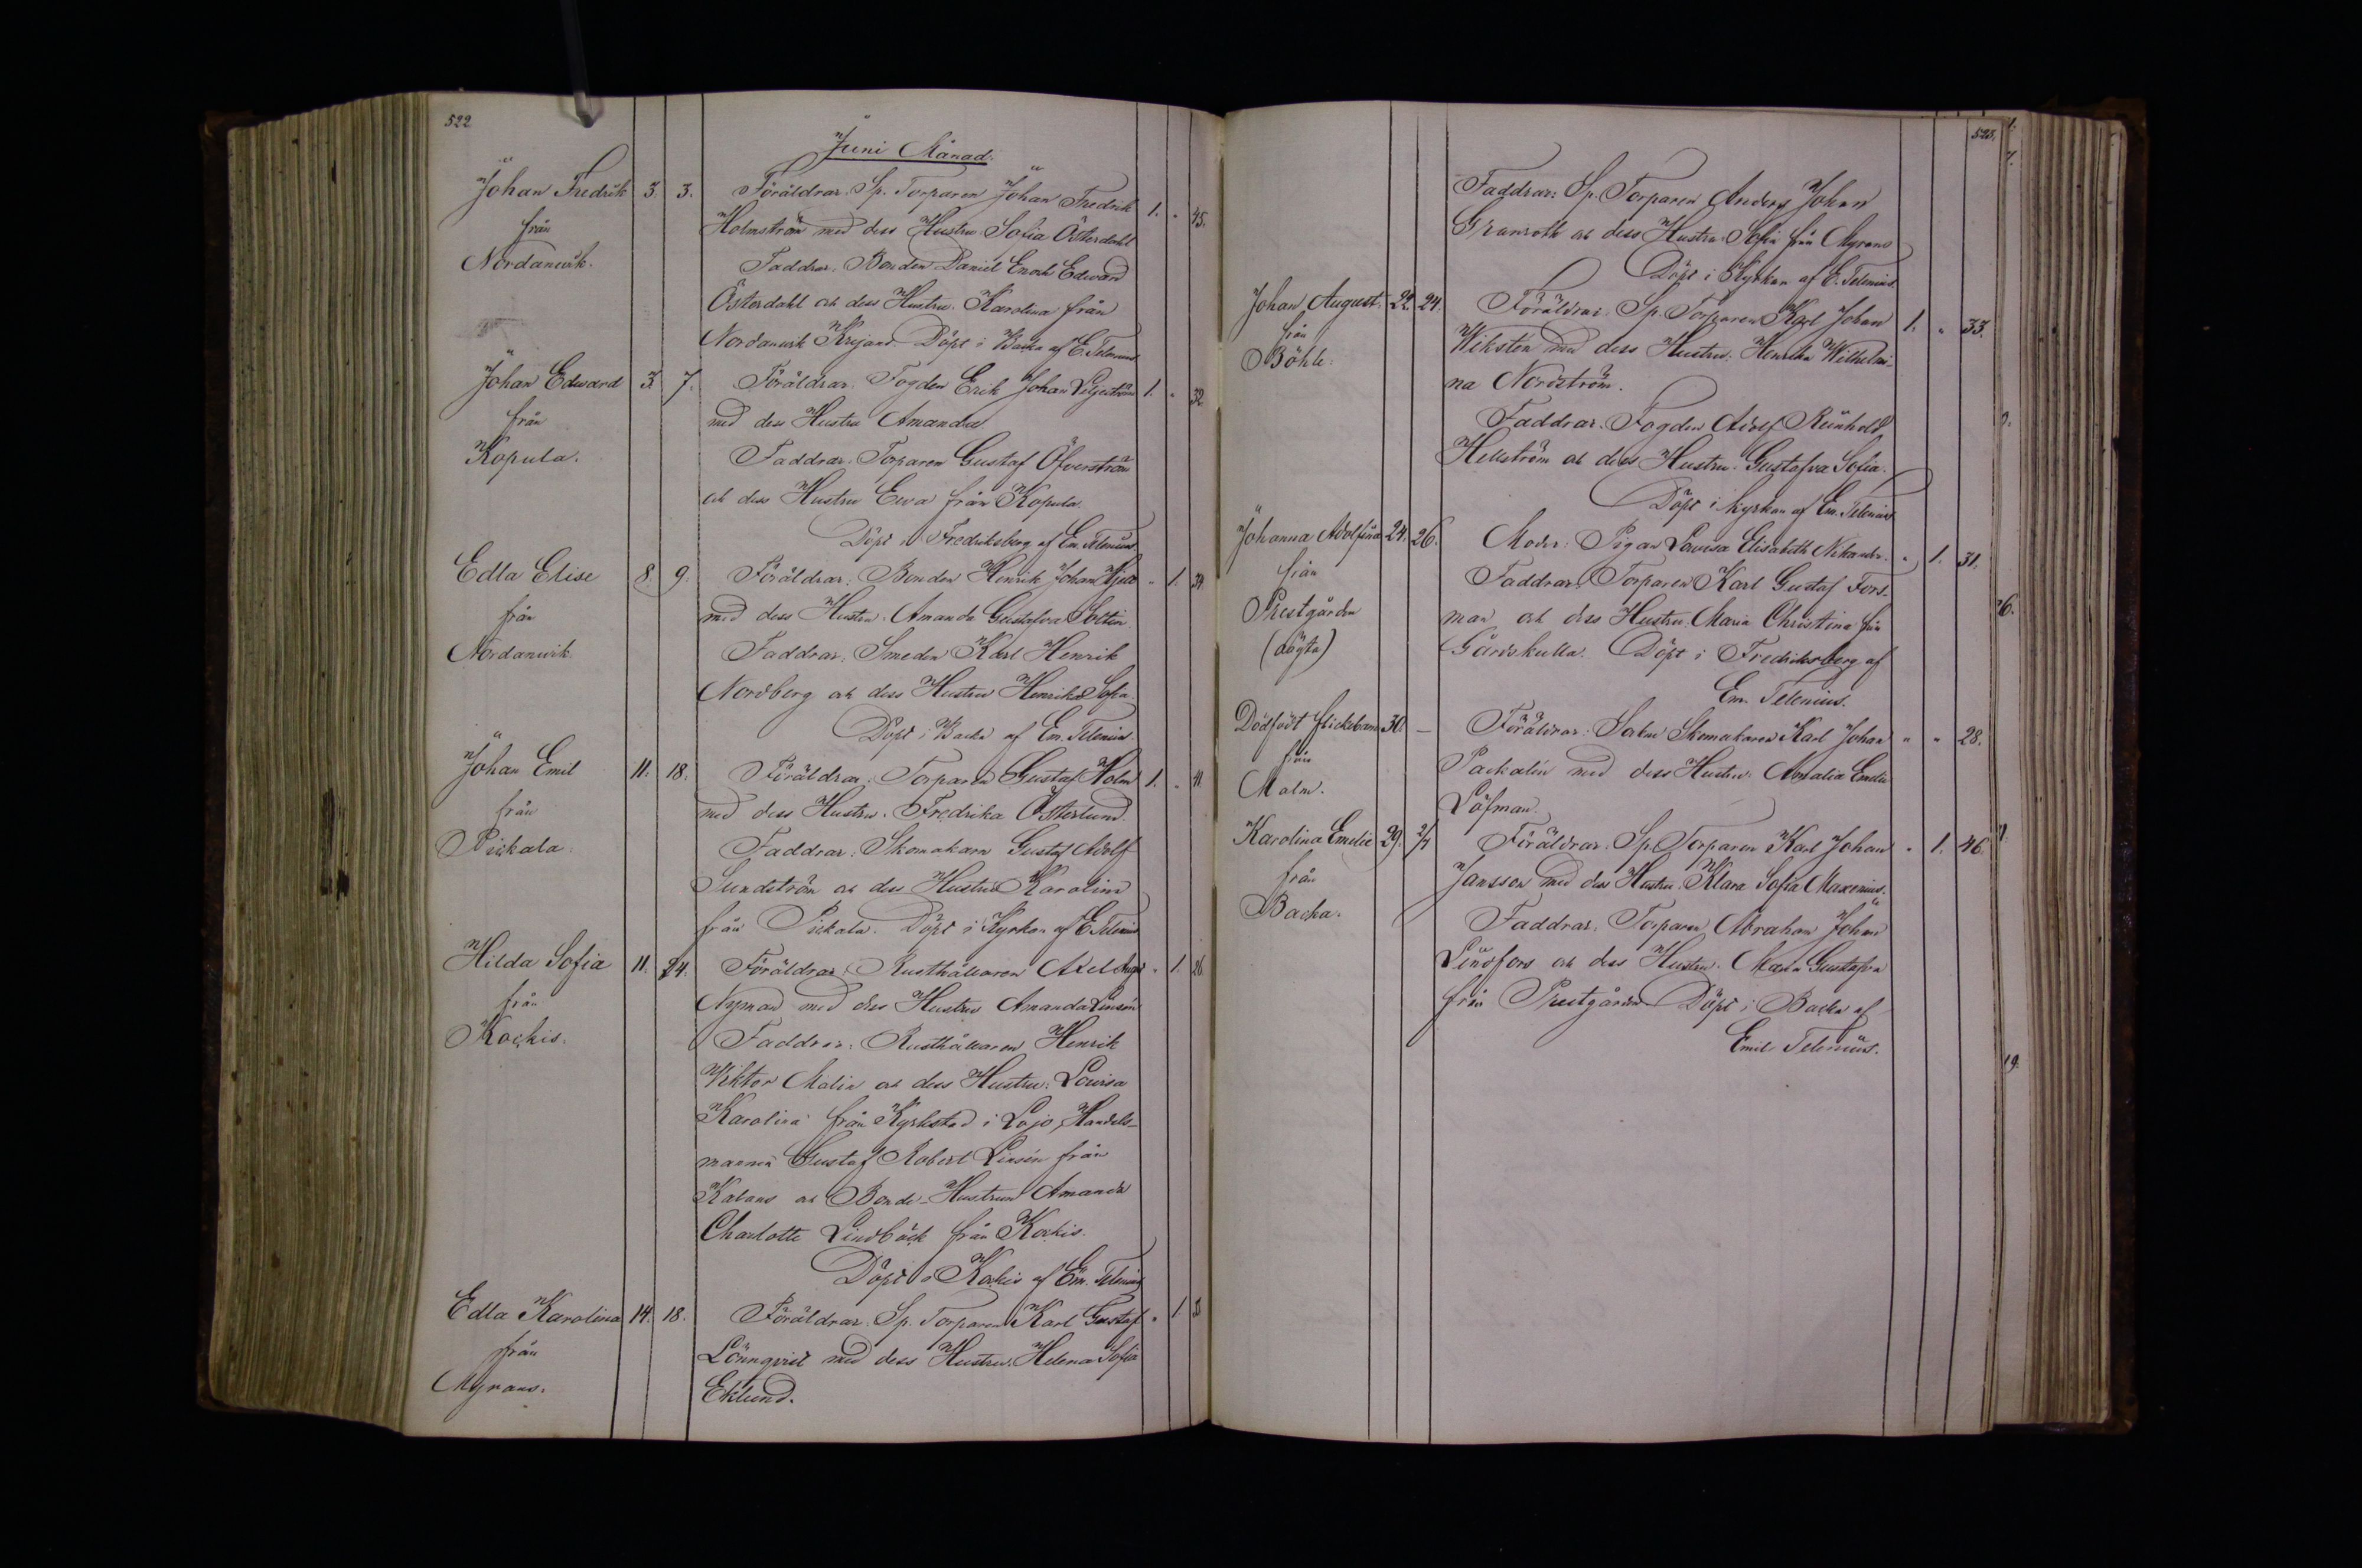 522
Juni Månad.
Johan Fredrik 3. 3. Föräldrar: Sp. Torparen Johan Fredrik 1. " 45.
från Holmström med dess Hustru Sofia Österdahl
Nordanvik. Faddrar: Bonden Daniel Enoch Edward
Österdahl och dess Hustru Karolina från
Nordanvik Döpt i Backa af E. Telenius
Johan Edward 3. 7. Föräldrar: Fogden Erik Johan Liljeström 1. " 32
från med dess Hustru Amanda
Kopula. Faddrar: Torparen Gustaf Öfverström
och dess Hustru Ewa från Kopula.
Döpt i Fredriksberg af Em. Telenius
Edla Elise 8. 9. Föräldrar: Bonden Henrik Johan " 1. 34.
från med dess Hustru Amanda Gustafva
Nordanvik. Faddrar: Smeden Karl Henrik
Nordberg och dess Hustru Henrika Sofia.
Döpt i Backa af Em. Telenius.
Johan Emil 11. 18. Föräldrar: Torparen Gustaf Holm 1. " 41.
från med dess Hustru Fredrika Österlund.
Pickala. Faddrar: Skomakaren Gustaf Adolf
Sundström och dess Hustru Karolina
från Pickala. Döpt i Kyrkan af E. Telenius
Hilda Sofia 11. 24. Föräldrar: Rusthållaren Axel Aug. " 1. 26.
från Nyman med dess Hustru Amanda Linsén
Kockis. Faddrar: Rusthållaren Henrik
Viktor Malin och dess Hustru: Lovisa
Karolina från Kyrkstad i Lojo, Handels-
mannen Gustaf Robert Linsén från
Kabans och Bonde-Hustrun Amanda
Charlotte Lindbäck från Kockis.
Döpt i Kockis af Em. Telenius
Edla Karolina 14. 18. Föräldrar: Sp. Torparen Karl Gustaf " 1.
från Lönnqvist med dess Hustru Helena Sofia
Myrans. Eklund.
523.
Faddrar: Sp. Torparen Anders Johan
Granroth och dess Hustru Sofia från Myrans
Döpt i Kyrkan af E. Telenius.
Johan August. 22. 24. Föräldrar: Sp. Torparen Karl Johan 1. " 33.
från Wikstén med dess Hustru: Henrika Wilhelmi-
Böhle. na Nordström.
Faddrar: Fogden Adolf Reinhold
Hellström och dess Hustru Gustafva Sofia.
Döpt i kyrkan af Em. Telenius
Johanna Adolfina 24. 26. Moder: Pigan Lovisa Elisabeth Nikander. " 1. 31.
från Faddrar: Torparen Karl Gustaf Fors-
Prestgården man och dess Hustru: Maria Christina från
(oägta) Gårdskulla. Döpt i Fredriksberg af
Em. Telenius.
Dödfödt flickebarn 30. — Föräldrar: Skomakaren Karl Johan " " 28.
från Packalén med dess Hustru: Amalia Emelie
Malm. Löfman.
Karolina Emelie 29. 2/7 Föräldrar: Sp. Torparen Karl Johan " 1. 46.
från Jansson med dess Hustru: Klara Sofia Maxenius.
Backa. Faddrar: Torparen Abraham Johan
Lindfors och dess Hustru: Maria Gustafva
från Prestgården Döpt i Backa af
Emil Telenius.